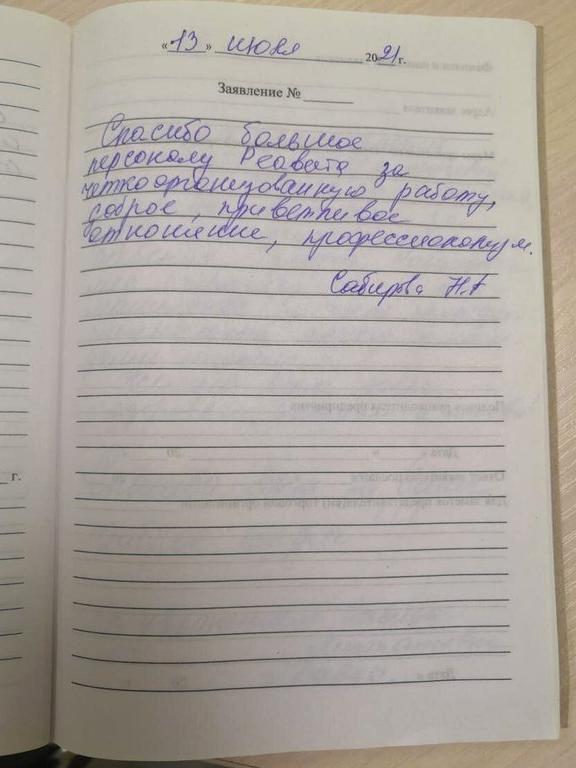 «13» июня 2021 г.
Заявление №
Спасибо большое
персоналу Реавита за
четкоорганизованную работу,
доброе, приветливое
отношение, профессионализм.
Сабирова Н.А
г.